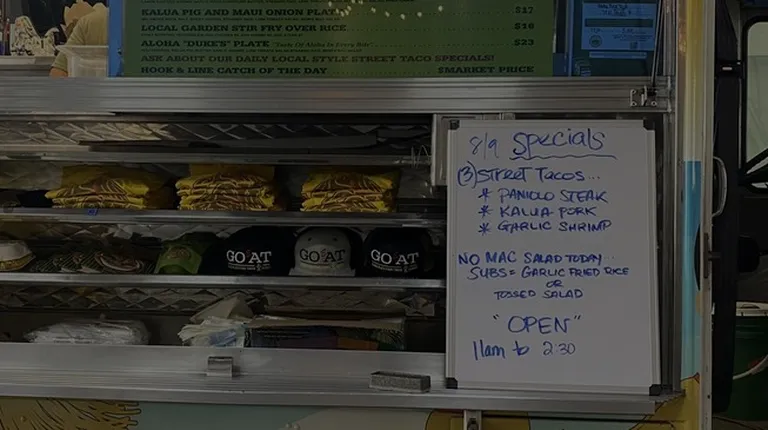 KALUA PIG AND MAUI ONION PLATE $17
LOCAL GARDEN STIR FRY OVER RICE $16
ALOHA "DUKE'S" PLATE "Taste Of Aloha In Every Bite" $23
ASK ABOUT OUR DAILY LOCAL STYLE STREET TACO SPECIALS!
HOOK & LINE CATCH OF THE DAY $MARKET PRICE
8/9 SPECIALS
(3) STREET TACOS...
* PANIOLO STEAK
* KALUA PORK
* GARLIC SHRIMP
NO MAC SALAD TODAY...
SUBS = GARLIC FRIED RICE
OR
TOSSED SALAD
"OPEN"
11am to 2:30
GOAT
GOAT
GOAT